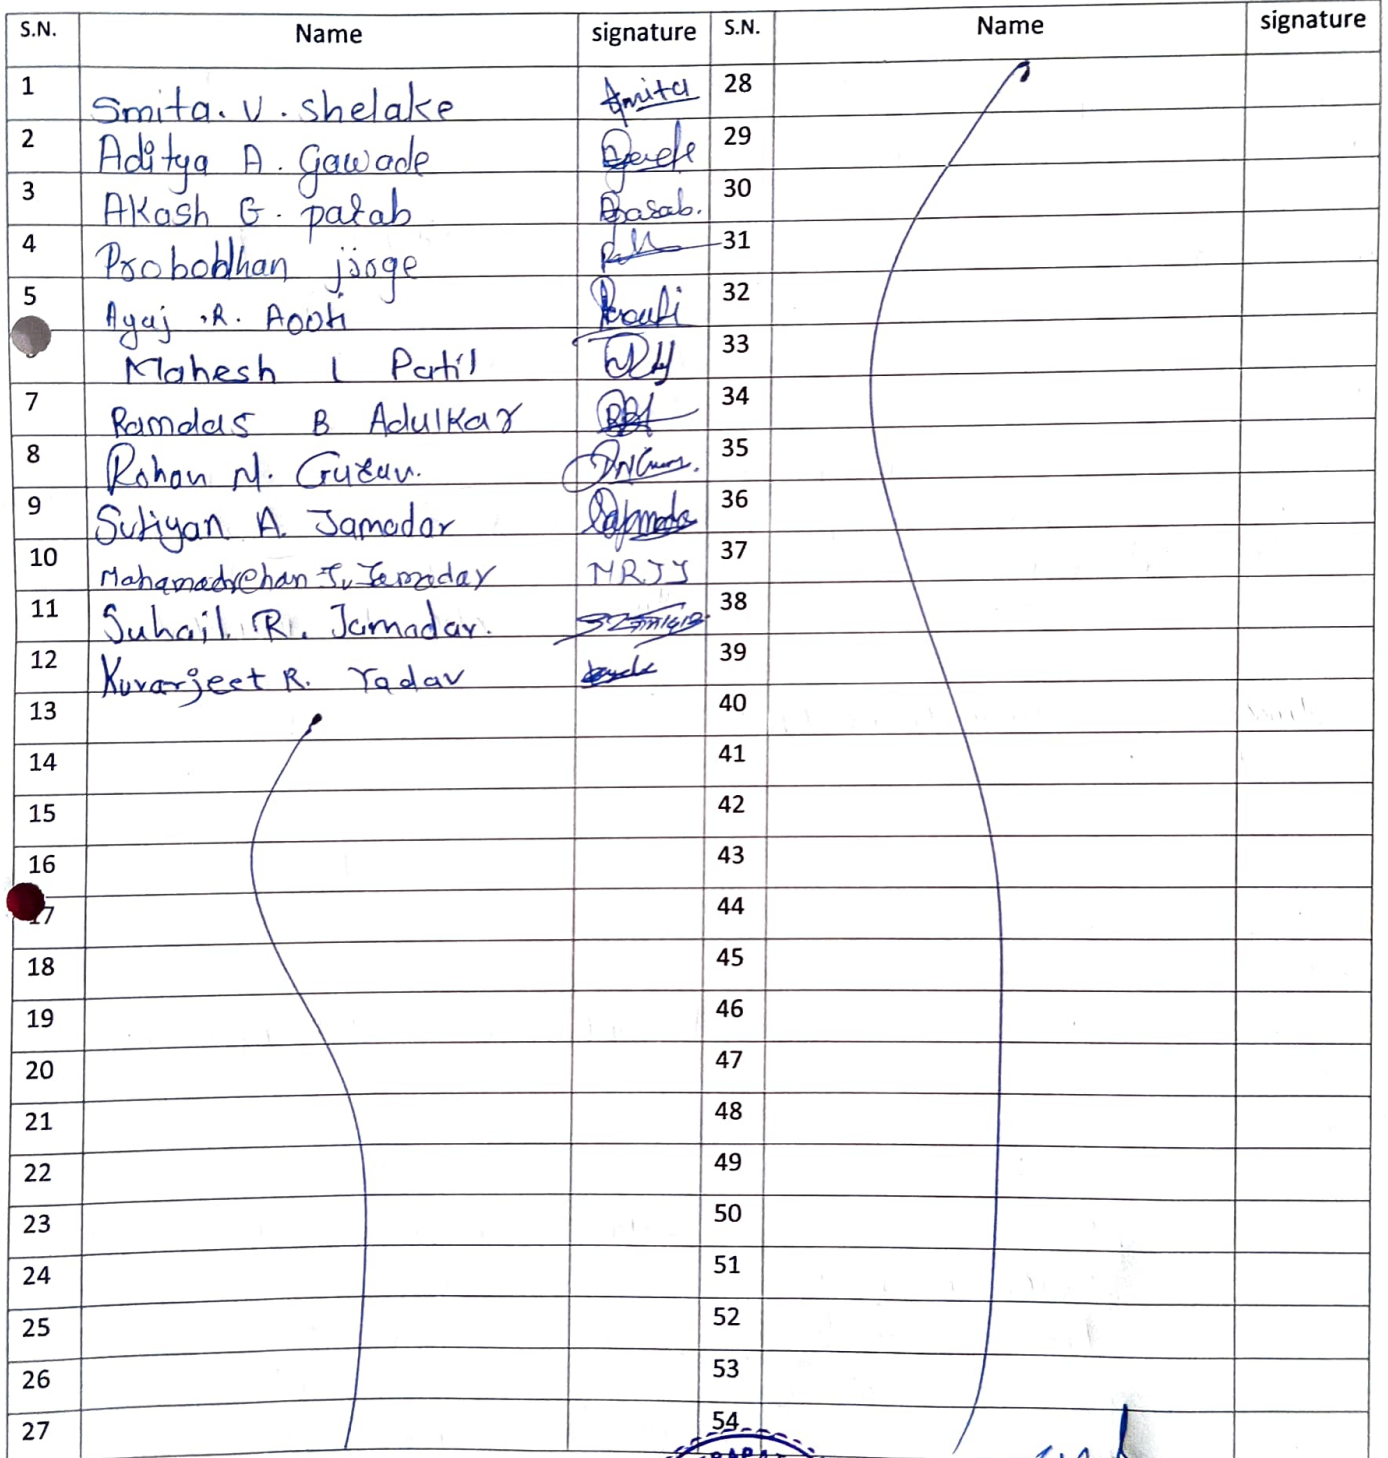 S.N. Name signature S.N. Name signature
1 Smita. V. Shelake Smita 28
2 Aditya A. Gawade 29
3 Akash G. parab Parab. 30
4 Prabodhan jirage 31
5 Ayaj .R. 32
Mahesh L Patil 33
7 Ramdas B Adulkar 34
8 Rohan N. Gurav. 35
9 Sufiyan A. Jamadar 36
10 J. Jamadar MRJJ 37
11 Suhail R. Jamadar. 38
12 Kuvarjeet R. Yadav 39
13 40
14 41
15 42
16 43
17 44
18 45
19 46
20 47
21 48
22 49
23 50
24 51
25 52
26 53
27 54